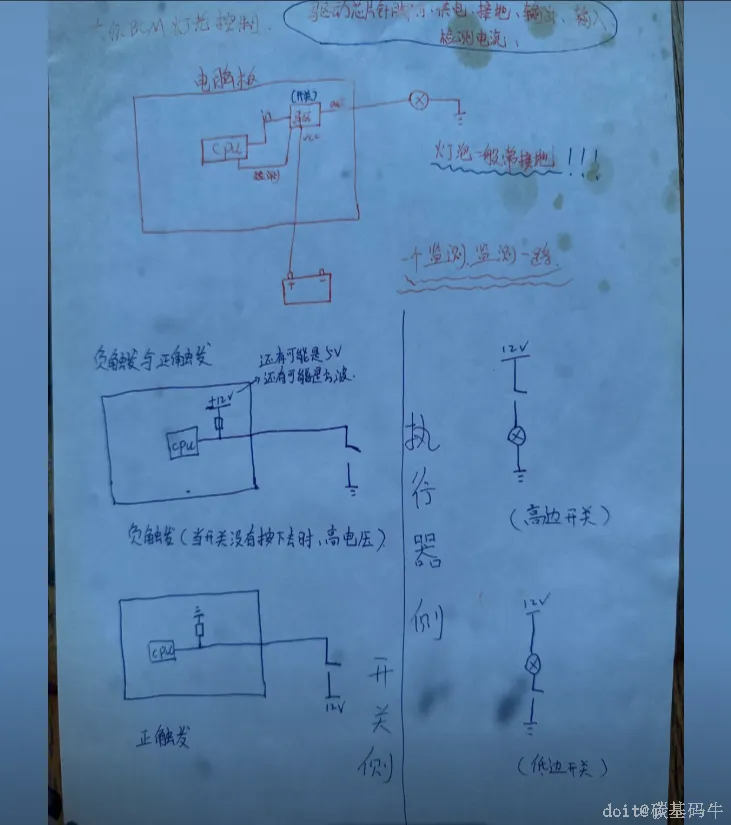 BCM 灯光控制.
驱动芯片针脚: 供电、接地、输出、输入
检测电流、
电脑板
(开关)
CPU
in
out
VCC
检测
灯泡一般常接地 !!!
+ -
一个监测 监测一路
负触发与正触发
还有可能是5V
还有可能是方波.
+12V
CPU
负触发(当开关没有按下去时、高电压)
CPU
12V
正触发
开关侧
执行器侧
12V
(高边开关)
12V
(低边开关)
doit@碳基码牛